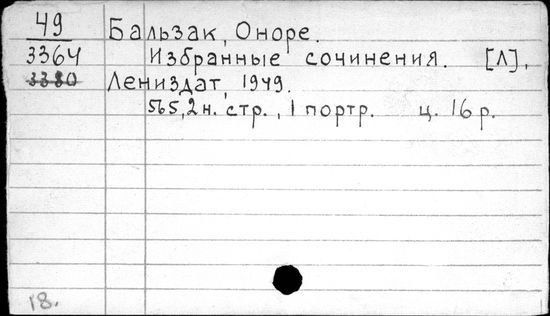 49 Бальзак, Оноре.
3364 Избранные сочинения. [Л],
3380 Лениздат, 1949.
565, 2 н. стр., 1 портр. ц. 16 р.
18.